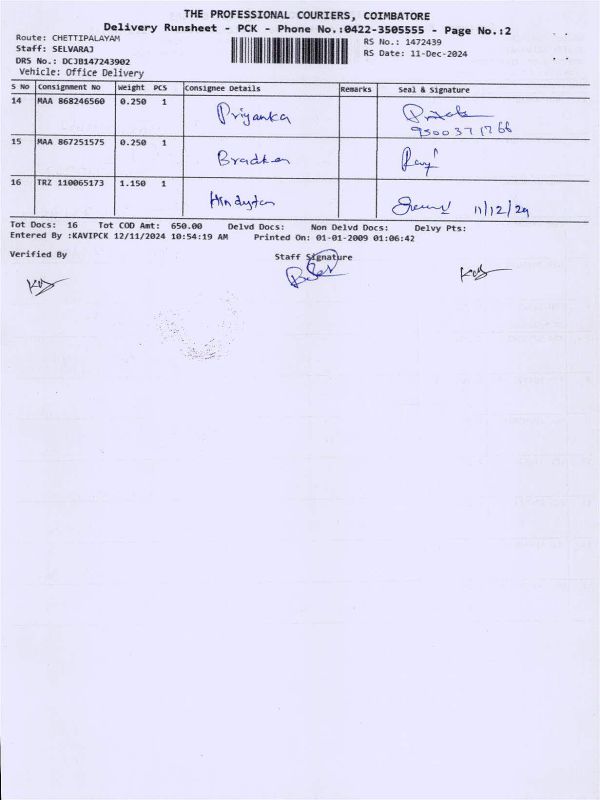 THE PROFESSIONAL COURIERS, COIMBATORE
Delivery Runsheet - PCK - Phone No.:0422-3505555 - Page No.:2
Route: CHETTIPALAYAM
RS No.: 1472439
Staff: SELVARAJ
RS Date: 11-Dec-2024
DRS No.: DCJB147243902
Vehicle: Office Delivery
S No Consignment No Weight PCS Consignee Details Remarks Seal & Signature
14 MAA 868246560 0.250 1 Priyanka
15 MAA 867251575 0.250 1
16 TRZ 110065173 1.150 1 11/12/24
Tot Docs: 16 Tot COD Amt: 650.00 Delvd Docs: Non Delvd Docs: Delvy Pts:
Entered By :KAVIPCK 12/11/2024 10:54:19 AM Printed On: 01-01-2009 01:06:42
Verified By Staff Signature